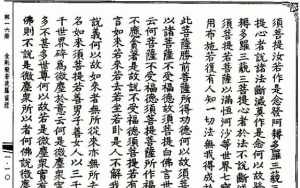 須菩提汝若作是念發阿耨多羅三藐三
提心者說諸法斷滅莫作是念何以故發
耨多羅三藐三菩提心者於法不說斷滅
須菩提若菩薩以滿恒河沙等世界七寶
用布施若復有人知一切法無我得成於
此菩薩勝前菩薩所得功德何以故須菩
以諸菩薩不受福德故須菩提白佛言世
云何菩薩不受福德須菩提菩薩所作福
不應貪著是故說不受福德須菩提若有
言如來若來若去若坐若臥是人不解我
說義何以故如來者無所從來亦無所去
名如來須菩提若善男子善女人以三千
千世界碎為微塵於意云何是微塵眾寧
多不甚多世尊何以故若是微塵眾實有
佛則不說是微塵眾所以者何佛說微塵
金剛般若波羅蜜經